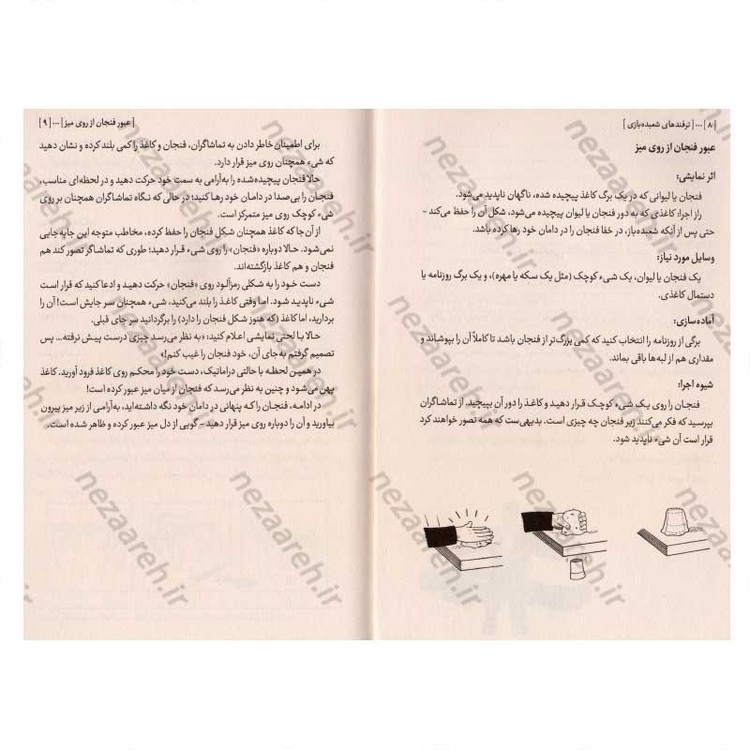 | ۸ | ... | ترفندهای شعبده‌بازی |
عبور فنجان از روی میز
اثر نمایشی:
فنجان یا لیوانی که در یک برگ کاغذ پیچیده شده، ناگهان ناپدید می‌شود.
راز اجرا: کاغذی که به دور فنجان یا لیوان پیچیده می‌شود، شکل آن را حفظ می‌کند –
حتی پس از آنکه شعبده‌باز، در خفا فنجان را در دامان خود رها کرده باشد.
وسایل مورد نیاز:
یک فنجان یا لیوان، یک شیء کوچک (مثل یک سکه یا مهره)، و یک برگ روزنامه یا
دستمال کاغذی.
آماده‌سازی:
برگی از روزنامه را انتخاب کنید که کمی بزرگ‌تر از فنجان باشد تا کاملاً آن را بپوشاند و
مقداری هم از لبه‌ها باقی بماند.
شیوه اجرا:
فنجان را روی یک شیء کوچک قرار دهید و کاغذ را دور آن بپیچید. از تماشاگران
بپرسید که فکر می‌کنند زیر فنجان چه چیزی است. بدیهی‌ست که همه تصور خواهند کرد
قرار است آن شیء ناپدید شود.
| عبور فنجان از روی میز | ... | ۹ |
برای اطمینان خاطر دادن به تماشاگران، فنجان و کاغذ را کمی بلند کرده و نشان دهید
که شیء همچنان روی میز قرار دارد.
حالا فنجان پیچیده‌شده را به‌آرامی به سمت خود حرکت دهید و در لحظه‌ای مناسب،
فنجان را بی‌صدا در دامان خود رها کنید؛ در حالی که نگاه تماشاگران همچنان بر روی
شیء کوچک روی میز متمرکز است.
از آن جا که کاغذ همچنان شکل فنجان را حفظ کرده، مخاطب متوجه این جابه‌جایی
نمی‌شود. حالا دوباره «فنجان» را روی شیء قرار دهید؛ طوری که تماشاگر تصور کند هم
فنجان و هم کاغذ بازگشته‌اند.
دست خود را به شکلی رمزآلود روی «فنجان» حرکت دهید و ادعا کنید که قرار است
شیء ناپدید شود. اما وقتی کاغذ را بلند می‌کنید، شیء همچنان سر جایش است! آن را
بردارید، اما کاغذ (که هنوز شکل فنجان را دارد) را برگردانید سر جای قبلی.
حالا با لحنی نمایشی اعلام کنید: «به نظر می‌رسد چیزی درست پیش نرفته... پس
تصمیم گرفتم به‌جای آن، خود فنجان را غیب کنم!»
در همین لحظه با حالتی دراماتیک، دست خود را محکم روی کاغذ فرود آورید. کاغذ
پهن می‌شود و چنین به نظر می‌رسد که فنجان از میان میز عبور کرده است!
در ادامه، فنجان را که پنهانی در دامان خود نگه داشته‌اید، به‌آرامی از زیر میز بیرون
بیاورید و آن را دوباره روی میز قرار دهید – گویی از دل میز عبور کرده و ظاهر شده است.
nezaareh.ir
nezaareh.ir
nezaareh.ir
nezaareh.ir
nezaareh.ir
nezaareh.ir
nezaareh.ir
nezaareh.ir